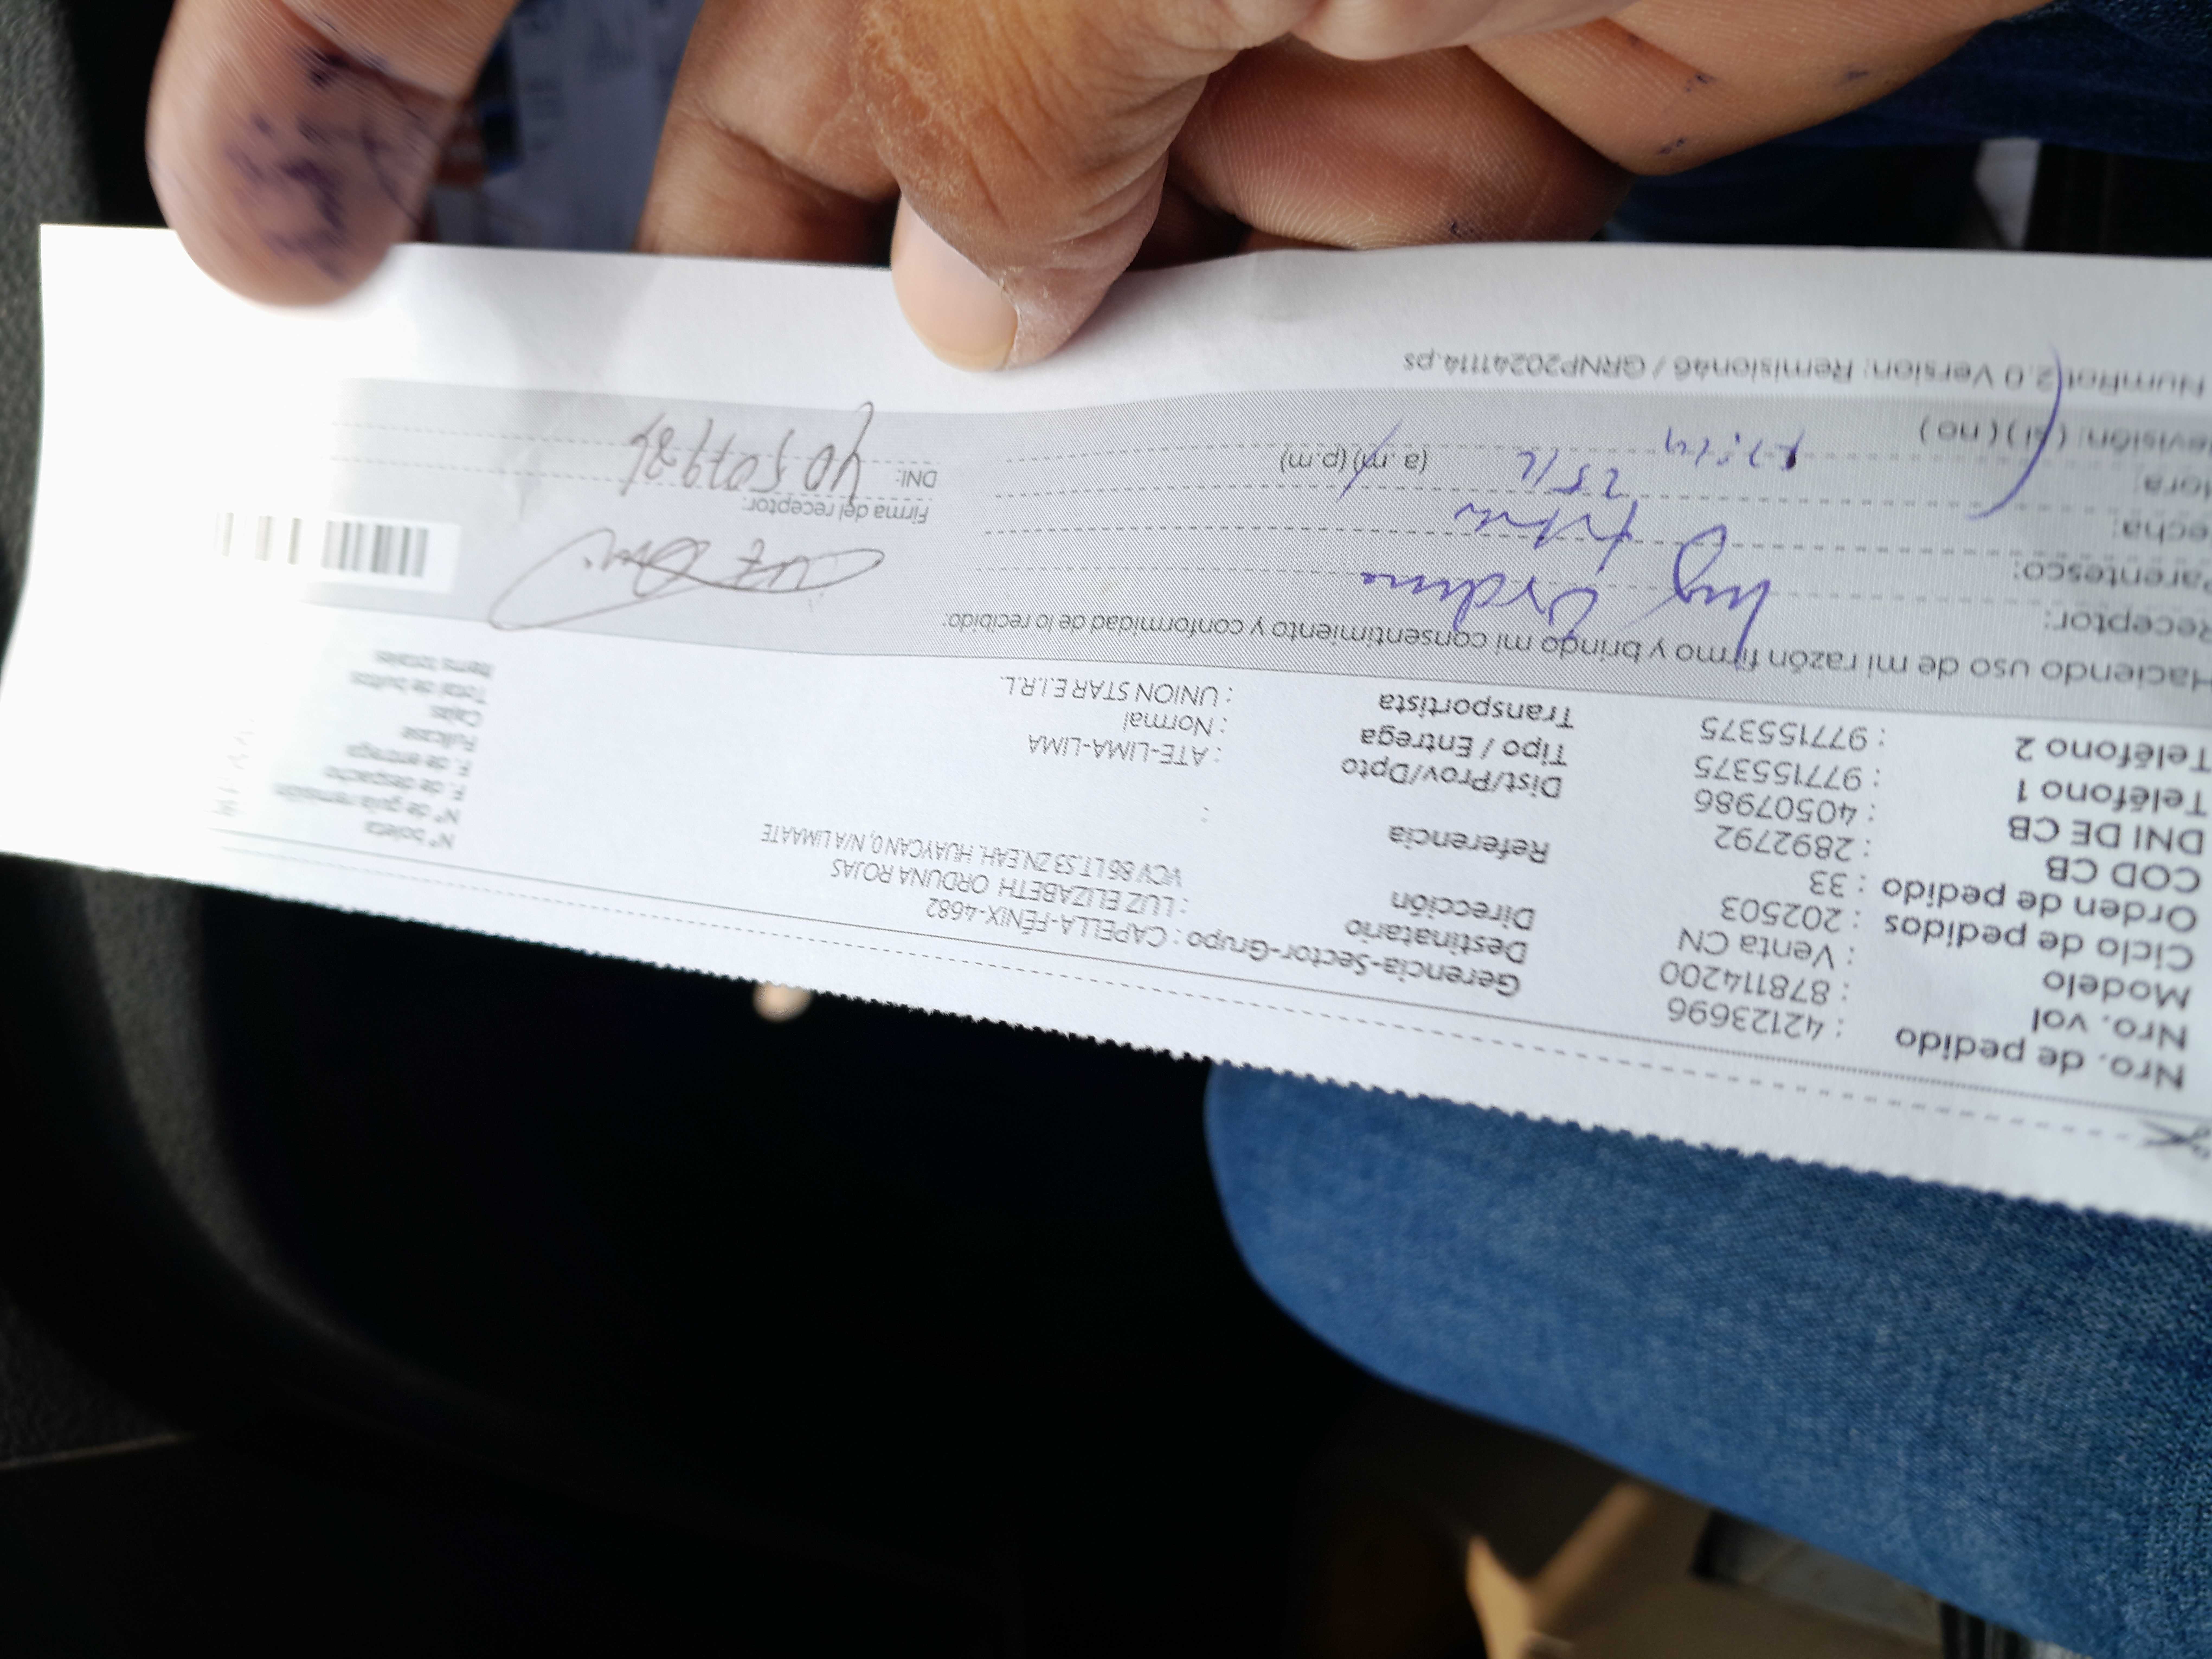 Nro. de pedido : 42123696
Nro. vol : 878114200
Modelo : Venta CN
Ciclo de pedidos : 202503
Orden de pedido : 33
COD CB : 2892792
DNI DE CB : 40507986
Teléfono 1 : 977155375
Teléfono 2 : 977155375
Gerencia-Sector-Grupo : CAPELLA-FÉNIX-4682
Destinatario : LUZ ELIZABETH ORDUNA ROJAS
Dirección : VCV 86 LT.53 ZN.EAH. HUAYCAN 0, N/A LIMAATE
Referencia :
Dist/Prov/Dpto : ATE-LIMA-LIMA
Tipo / Entrega : Normal
Transportista : UNION STAR E.I.R.L.
N° boleta
N° de guía remisión
F. de despacho
F. de entrega
Fullcase
Cajas
Total de bultos
Items totales
Haciendo uso de mi razón firmo y brindo mi consentimiento y conformidad de lo recibido:
Receptor: Luz Orduna
arentesco: titular
echa: 25/2
lora: (a.m) (p.m)
evisión: ( si ) ( no )
Firma del receptor:
DNI: 40507986
NumRot 2.0 Version: Remision46 / GRNP20241114.ps